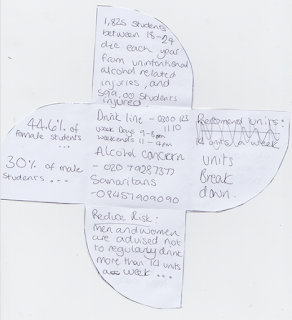 1,825 students
between 18-24
die each year
from unintentional
alcohol related
injuries, and
599,00 students
injured
44.6% of
female students
...
30% of male
students ...
Drink line - 0300 123
1110
Week Days 9-8pm
weekends 11-4pm
Alcohol concern
- 020 79287377
Samaritans
-08457909090
Recomend units:
units a week
units
Break
down.
Reduce Risk:
men and women
are advised not
to regularly drink
more than 14 units
a week ...